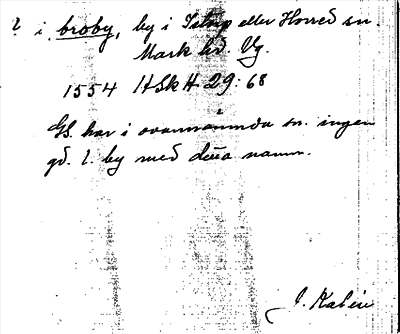 ? i broby, by i Istorp eller Horred sn
Mark hd. Vg.
1554 HSkH 29:68
GS. har i ovannämnda sn. ingen
gd. l. by med detta namn.
J. Kalén